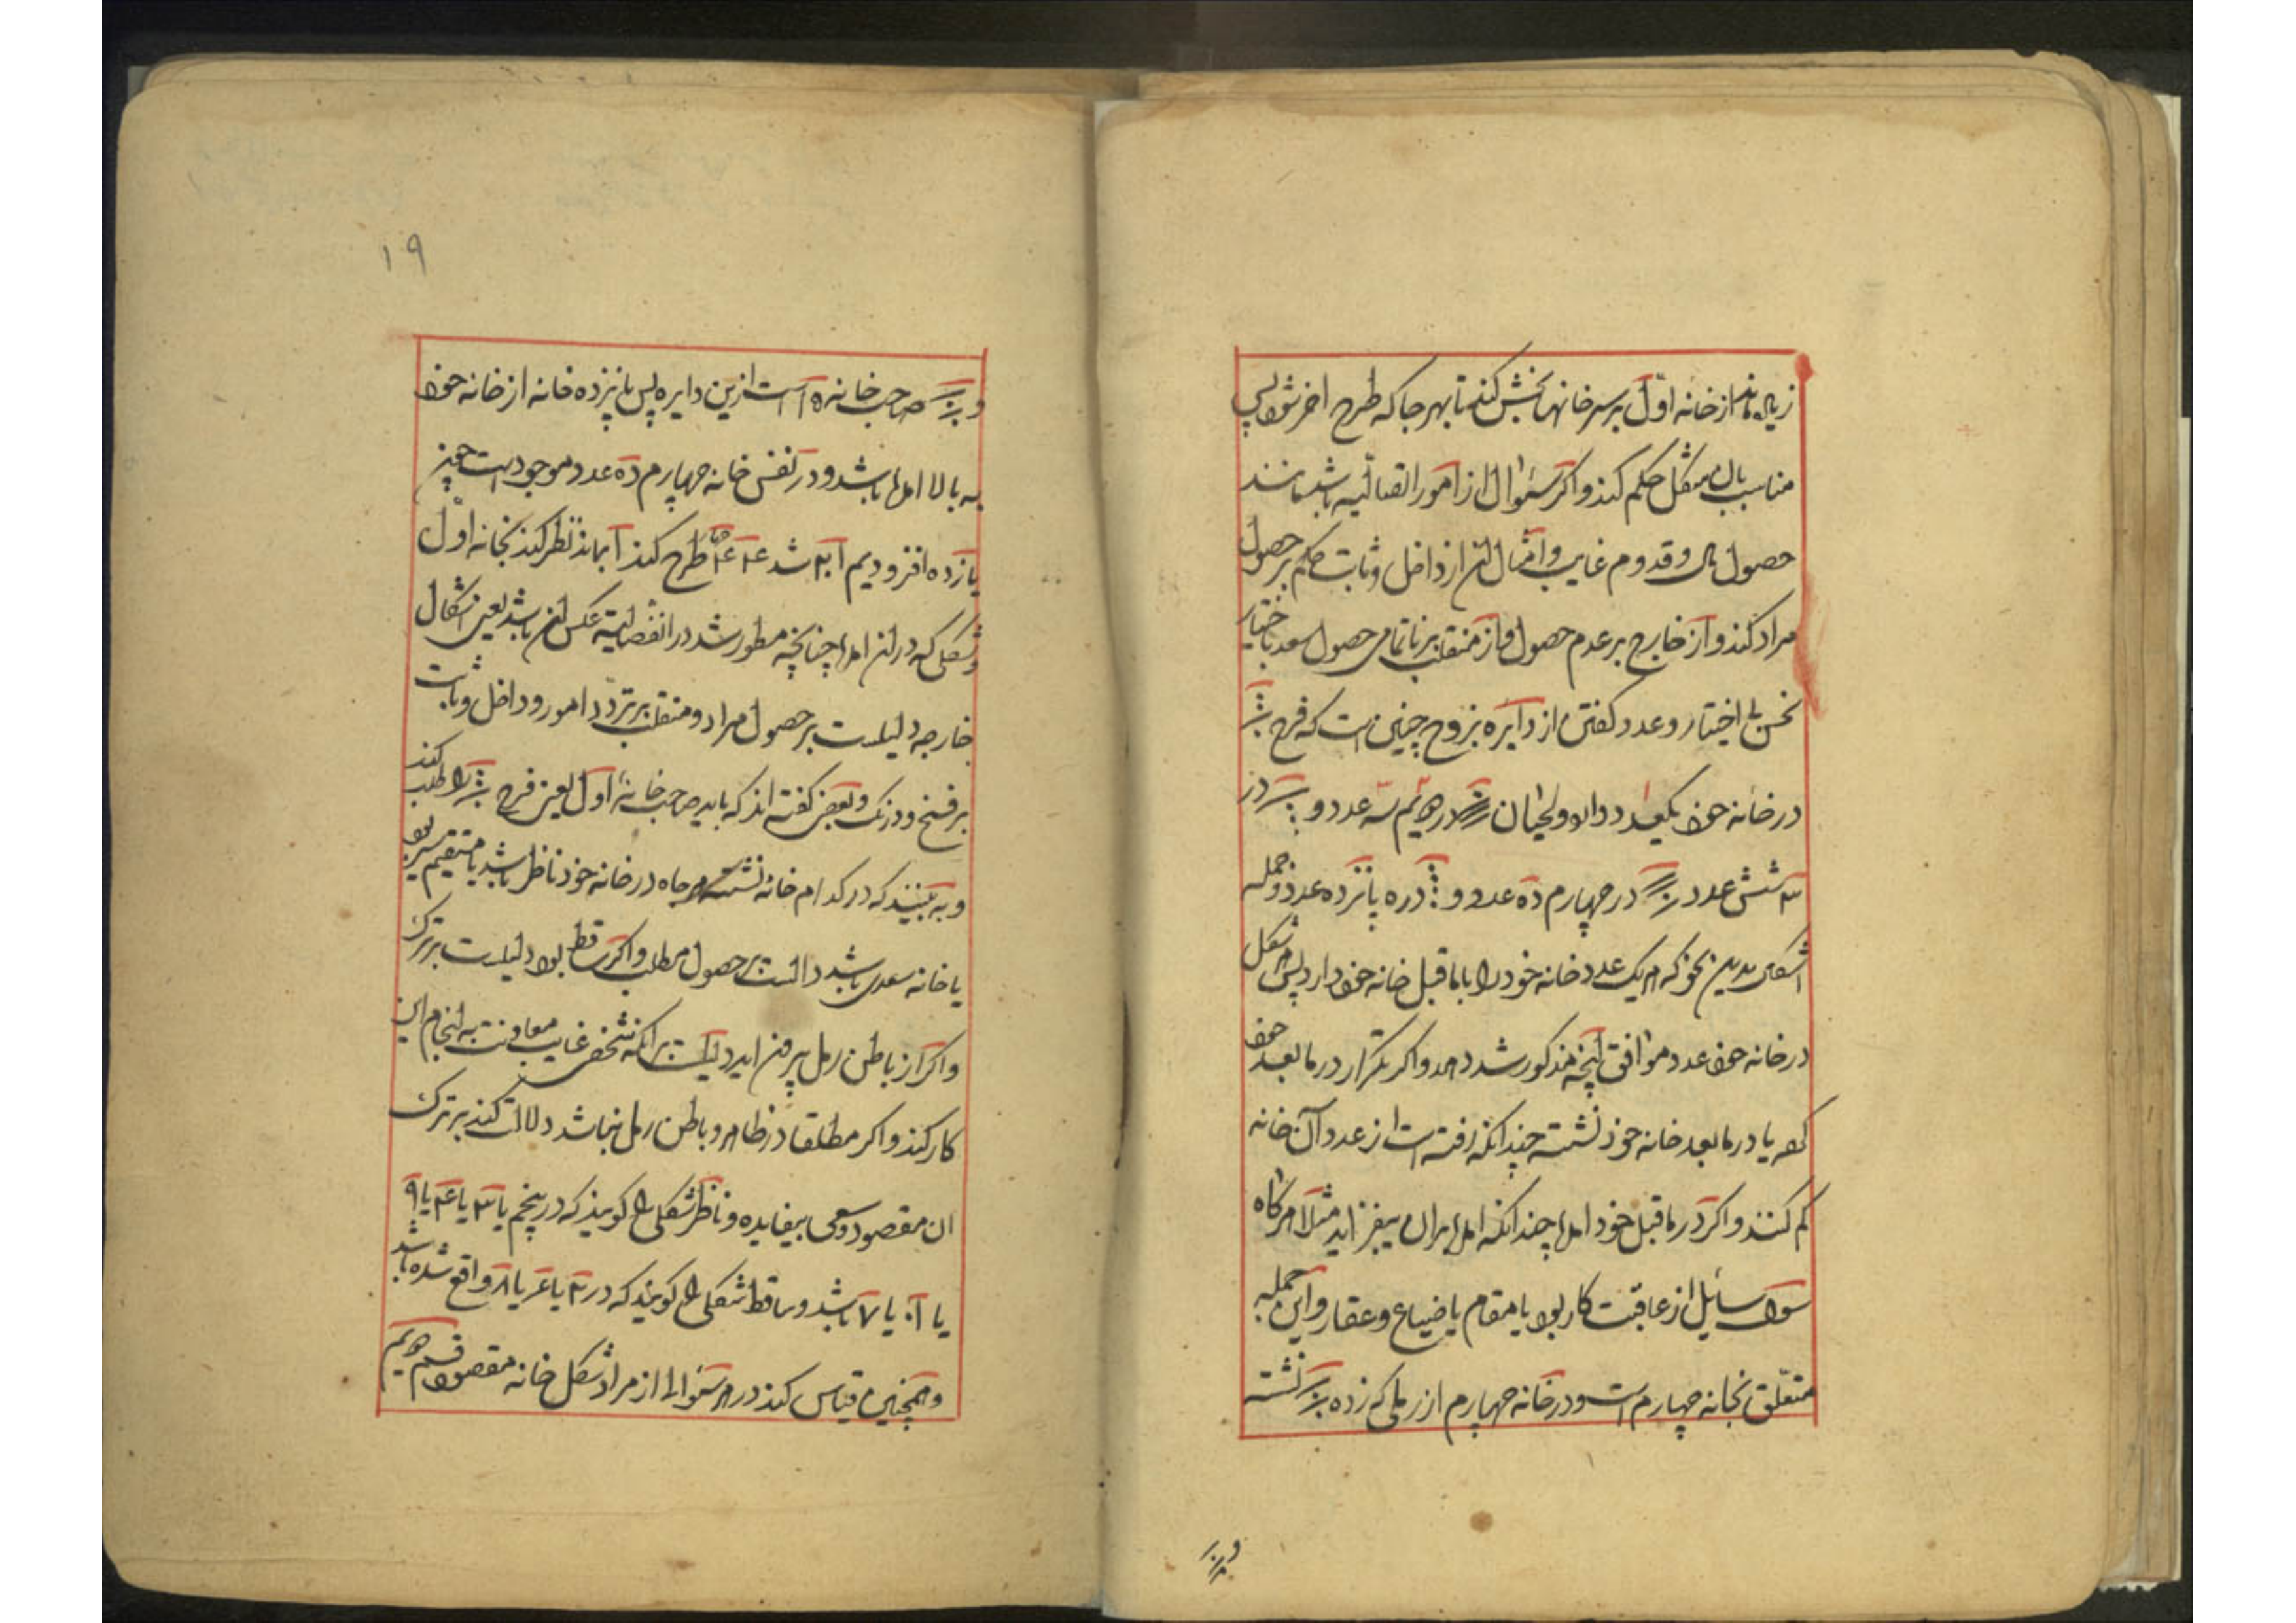 زیاده ماند از خانه اول بر سر خانها بخش کند تا بهر جا که طرح اخر شود پس
مناسب بال شکل حکم کند و اکر سئوال از امور اتصالیه باشد مانند
حصول مال و قدوم غایب و امثال ان از داخل و ثابت حکم بر حصول
مراد کند و از خارج بر عدم حصول و از منقلب بر ناتمامی حصول سعد باختیار
نحس بی اختیار و عدد کفتن از دایره بزوج چنین است که فرح
در خانه خود یکعدد دارد و لحیان در دویم سه عدد و در
۳ شش عدد در چهارم ده عدد و در ۵ پانزده عدد و جمله
اشکال بدین نحو که هر یک عدد خانه خود را با ماقبل خانه خود دارد پس هر شکل
در خانه خود عدد موافق انچه مذکور شد دهد و اکر بتکرار در مابعد خود
کند یا در مابعد خانه خود نشسته چندانکه رفته است از عدد آن خانه
کم کنند و اکر در ماقبل خود امده چندانکه امده بران بیفزاید مثلا هرکاه
سوال سائیل از عاقبت کار بود یا مقام یا ضیاع و عقار و این جمله
متعلق بخانه چهارم است و در خانه چهارم از رملی که زده نشسته
و
۱۹
و صاحب خانه ۱۵ است ازین دایره پس پانزده خانه از خانه خود
به بالا امده باشد و در نفس خانه چهارم ده عدد موجود است چون
یازده افزودیم ۲۱ شد طرح کند ماند نظر کند بخانه اول
و شکلی که در ان امده چنانچه مطور شد در انفصالیه عکس ان باشد یعنی اشکال
خارجه دلیلست بر حصول مراد و منقلب بر تردد امور و داخل و ثابت
بر فسخ و درنک و بعضی کفته اند که باید صاحب خانه اول یعنی فرح را طلب کند
و به بیند که در کدام خانه نشسته هر جاه در خانه خود ناظر باشد یا مستقیم بود
یا خانه سعدی باشد دالست بر حصول مطلب و اکر ساقط بود دلیلست بر ترک
و اکر از باطن رمل بیرون اید دلیلست بر انکه شخص غایب معاونت به انجام این
کار کند و اکر مطلقا در ظاهر و باطن رمل نباشد دلالت کند بر ترک
ان مقصود و سعی بیفایده و ناظر شکلی را کویند که در پنجم یا ۳ یا ۴ یا ۹
یا ۱۰ یا ۷ باشد و ساقط شکلی را کویند که در ۲ یا ۶ یا ۸ واقع شده باشد
و همچنین قیاس کند در هر سئوال از مراد شکل خانه مقصود قسم دویم